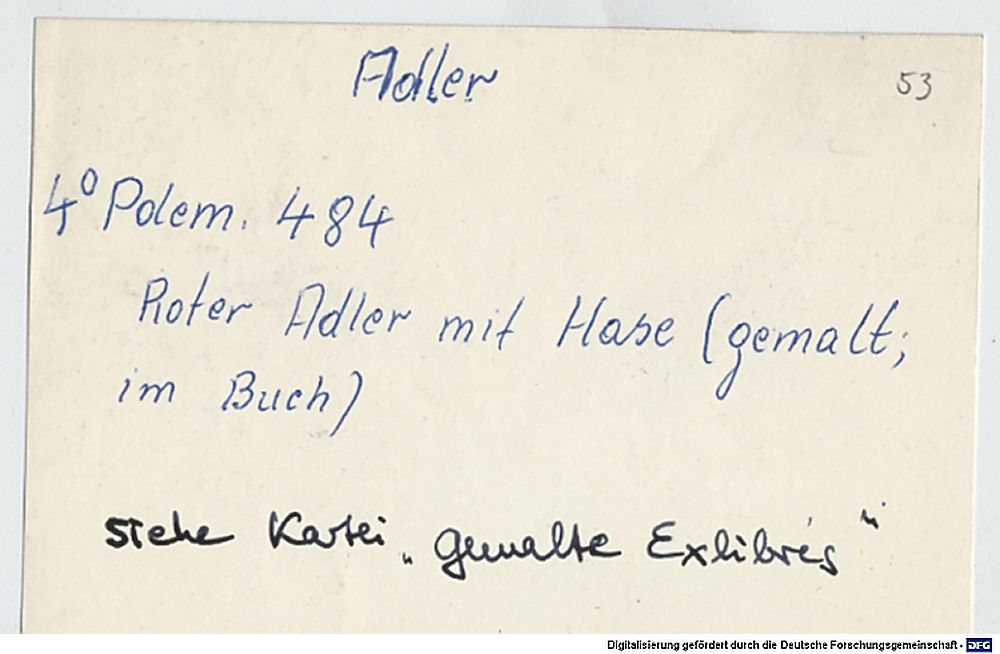 Adler
53
4° Polem. 484
Roter Adler mit Hase (gemalt;
im Buch)
siehe Kartei „gemalte Exlibris“
Digitalisierung gefördert durch die Deutsche Forschungsgemeinschaft - DFG